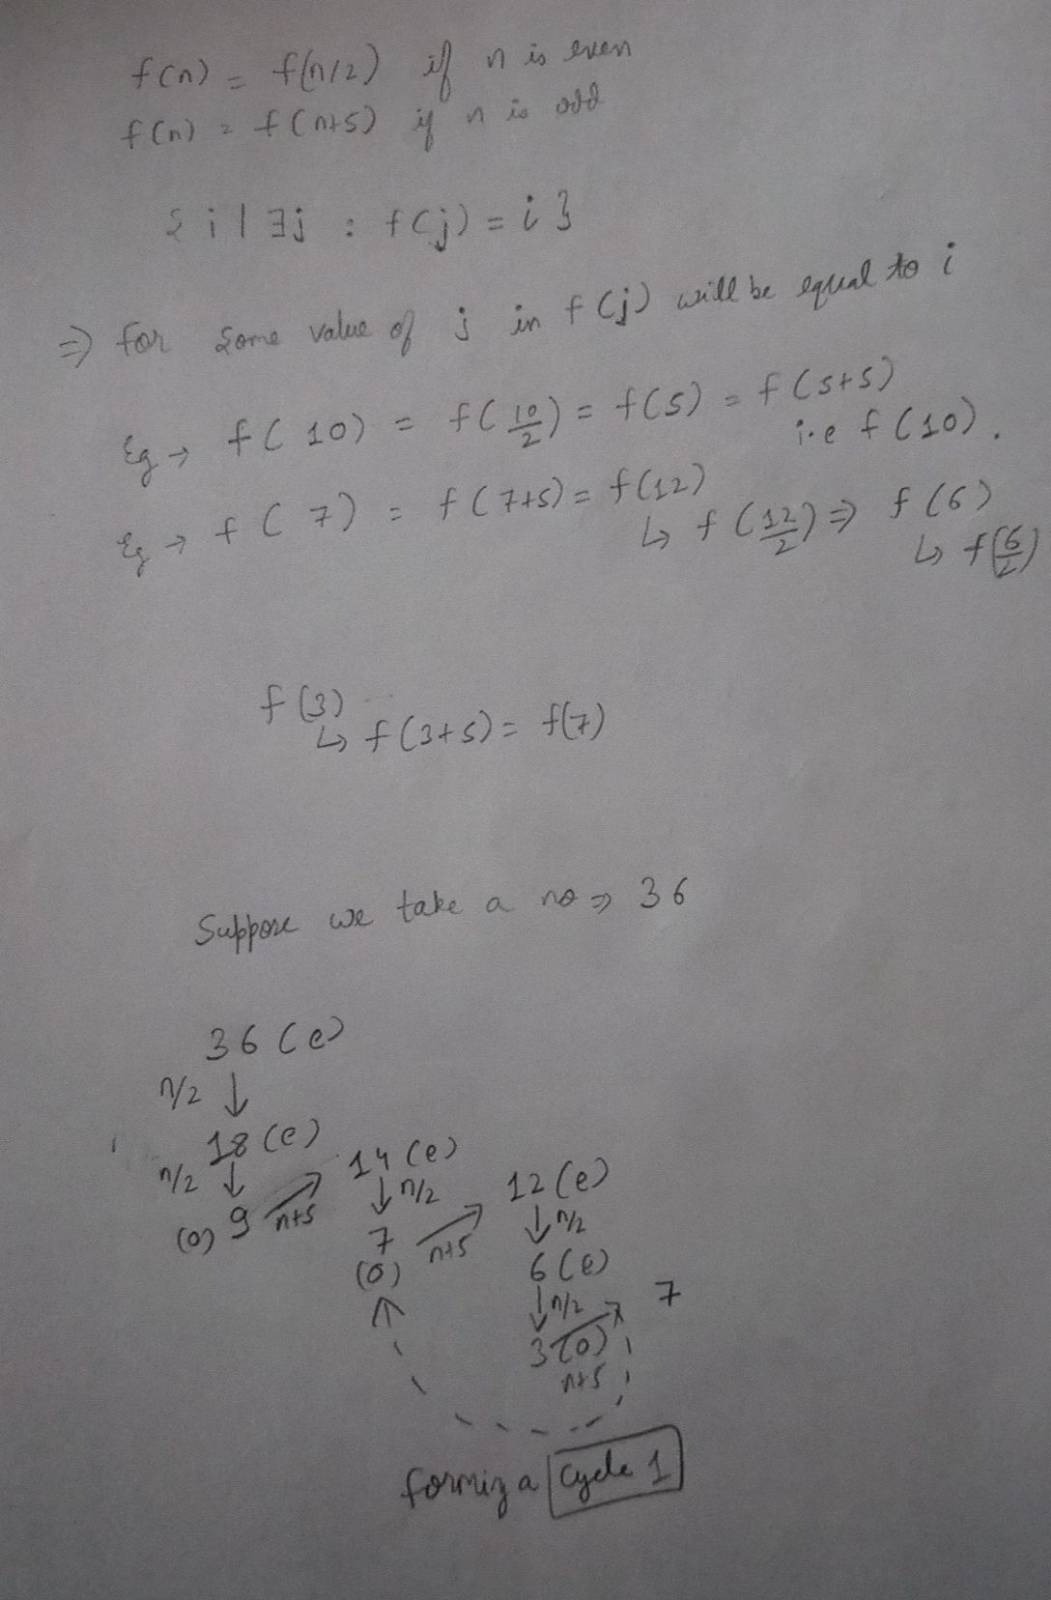 f(n) = f(n/2) if n is even
f(n) = f(n+5) if n is odd
{ i | ∃j : f(j) = i }
⇒ for some value of j in f(j) will be equal to i
Eg → f(10) = f(10/2) = f(5) = f(5+5)
i.e f(10).
Eg → f(7) = f(7+5) = f(12)
↳ f(12/2) ⇒ f(6)
↳ f(6/2)
f(3)
↳ f(3+5) = f(7)
Suppose we take a no ⇒ 36
36 (e)
n/2 ↓
18 (e)
n/2 ↓
(o) 9 n+5 →
14 (e)
↓ n/2
7
(o)
n+5 →
12 (e)
↓ n/2
6 (e)
↓ n/2
3 (o)
n+5
7
formig a Cycle 1